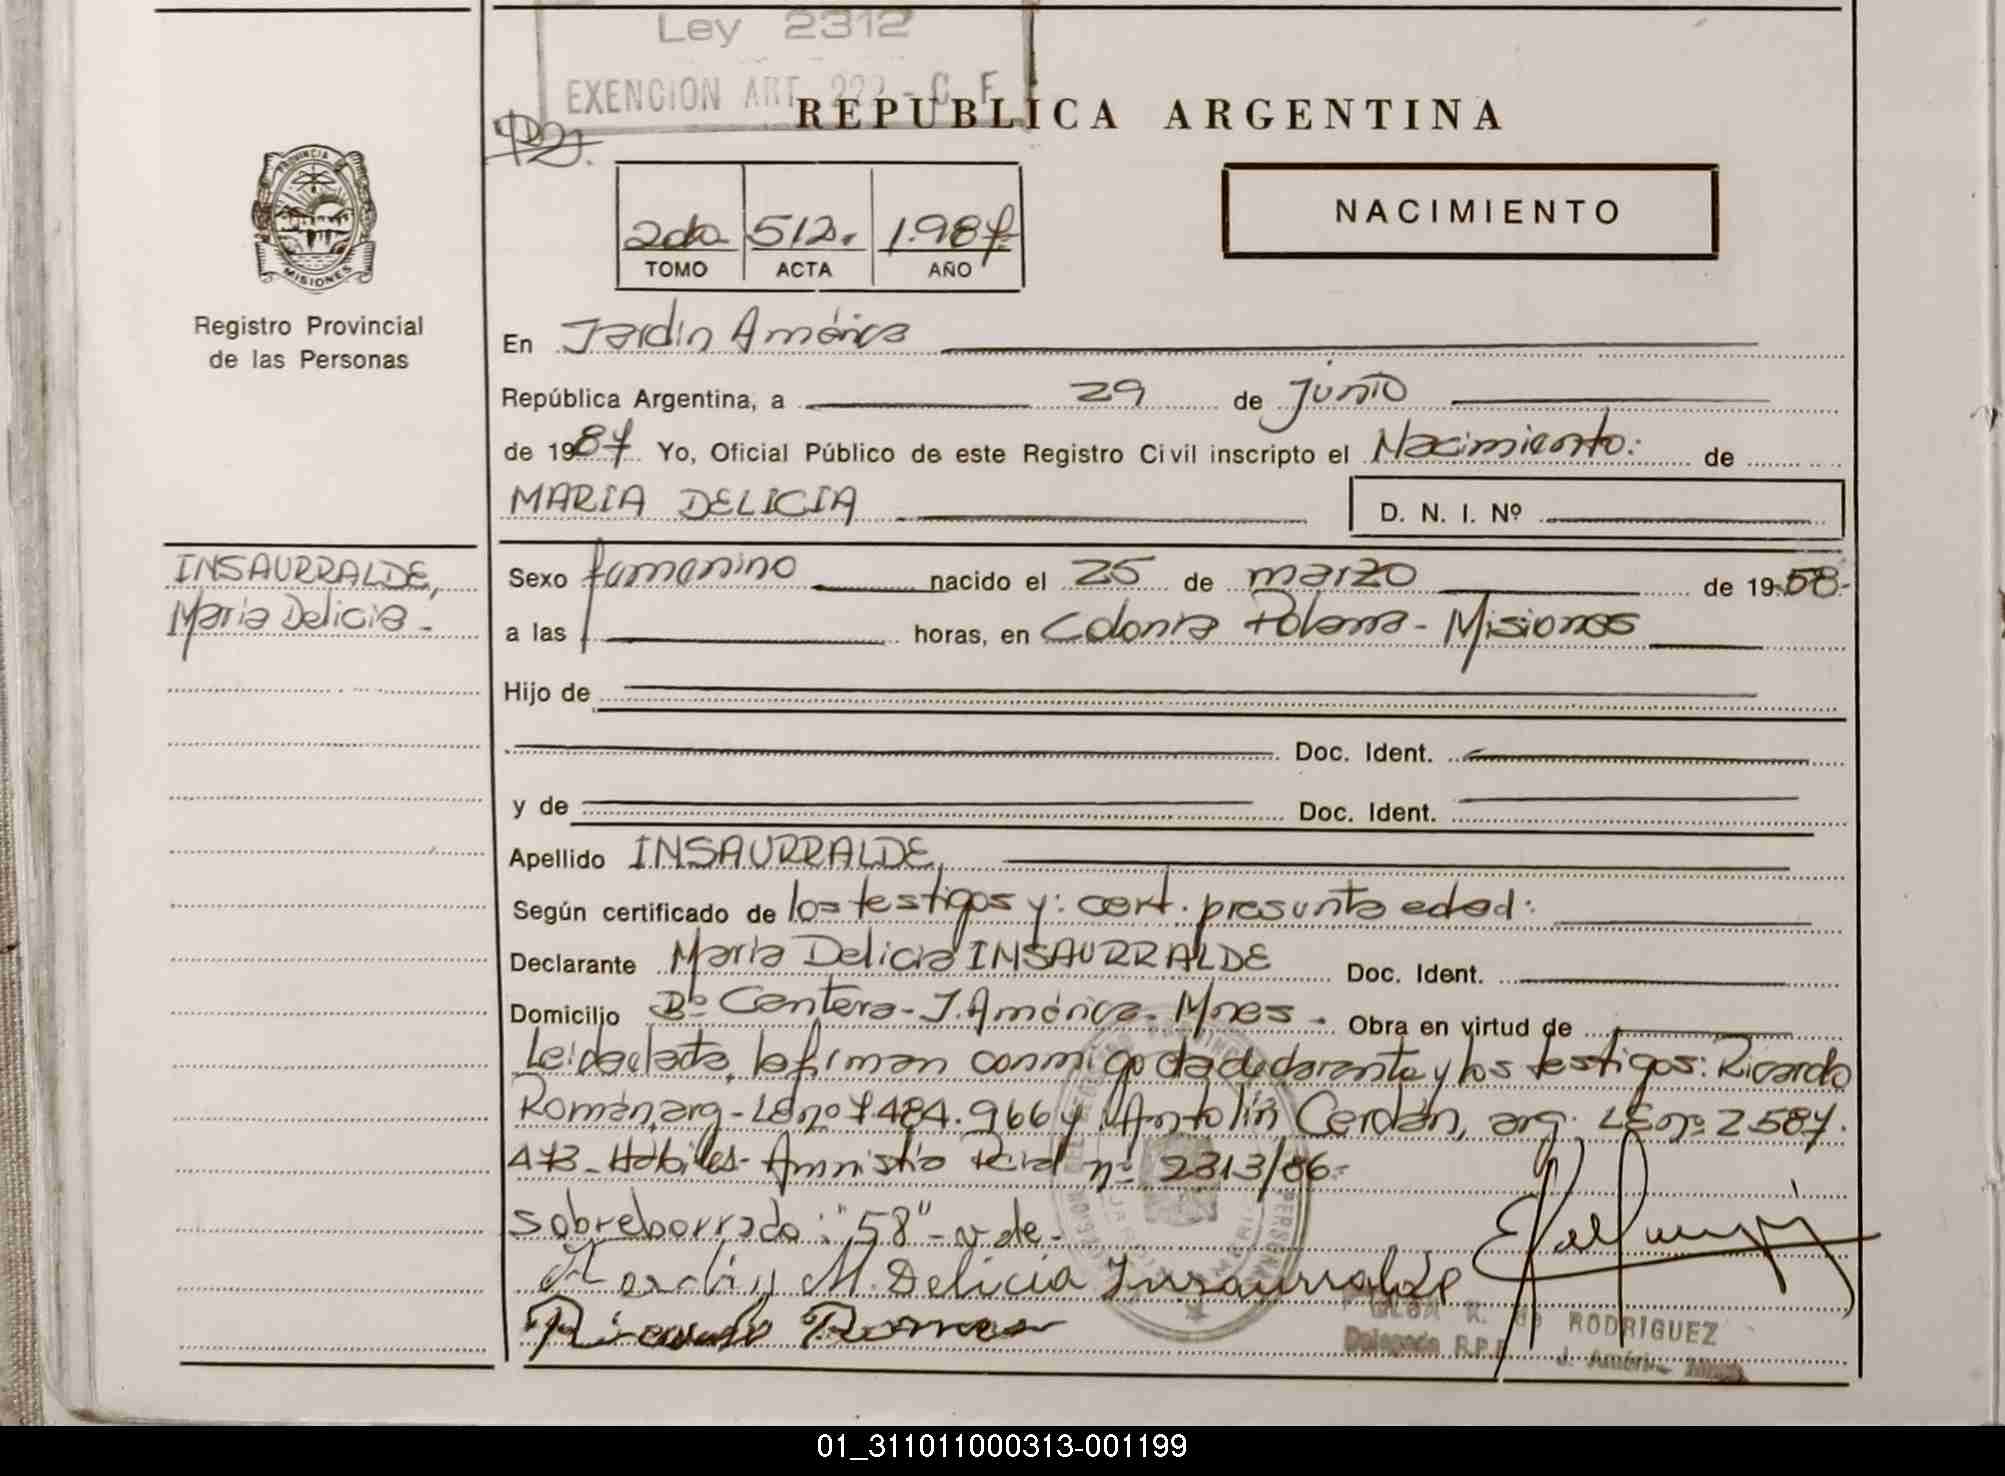 Ley 2312
EXENCION ART 222 - C. F.
REPUBLICA ARGENTINA
PROVINCIA DE
MISIONES
Registro Provincial
de las Personas
NACIMIENTO
2do 512. 1.987
TOMO ACTA AÑO
En Jardín América
República Argentina, a 29 de junio
de 1987 Yo, Oficial Público de este Registro Civil inscripto el Nacimiento: de
MARIA DELICIA D. N. I. Nº
INSAURRALDE,
Maria Delicia -
Sexo femenino nacido el 25 de marzo de 1958-
a las horas, en Colonia Polana - Misiones
Hijo de
Doc. Ident.
y de Doc. Ident.
Apellido INSAURRALDE,
Según certificado de los testigos y: cert. presunta edad:
Declarante María Delicia INSAURRALDE Doc. Ident.
Domicilio Bº Centera - J. América - Mnes - Obra en virtud de
Leída el acta, la firman conmigo la declarante y los testigos: Ricardo
Román, arg - LE nº 7484.966 y Antolín Cerdán, arg. LE nº 2587.
473 - Hábiles - Amnistía Pcial nº 2313/86 -
sobreborrado: "58" - vale -
M. Delicia Insaurralde
Ricardo Roman
R. de RODRIGUEZ
Delegada R.P.P.
J. Améri
01_311011000313-001199